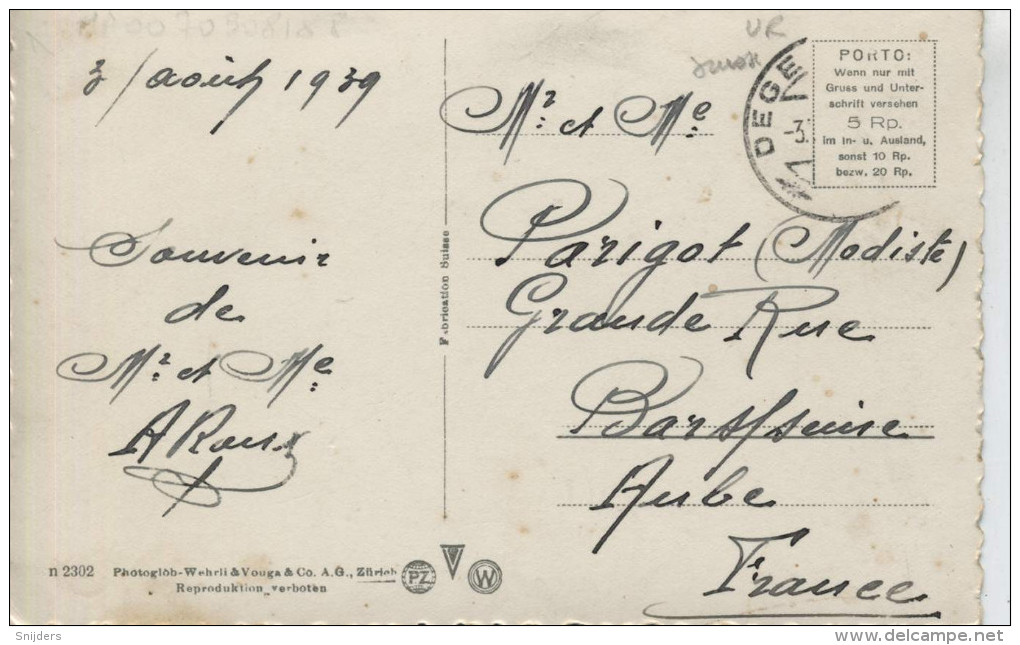 UR
3/août 1939
Souvenir
de
Mr et Me
A Roux
Mr et Me
Parigot (Modiste)
Grande Rue
Bars/Seine
Aube
France
DEGE
-3.
PORTO:
Wenn nur mit
Gruss und Unter-
schrift versehen
5 Rp.
im In- u. Ausland,
sonst 10 Rp.
bezw. 20 Rp.
Fabrication Suisse
n 2302 Photoglob-Wehrli & Vouga & Co. A.G., Zürich
Reproduktion verboten
PZ
W
Snijders
delcampe.net